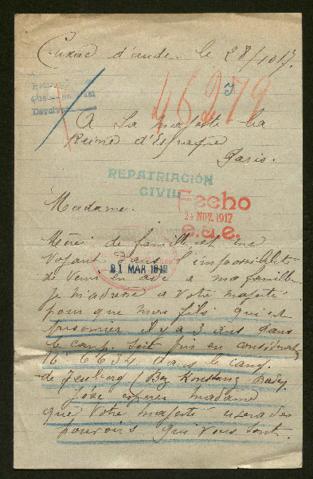 Cuxac d'aude. le 28/10/17.
46279
A La Majesté La
Reine d'Espagne
Paris.
REPATRIACIÓN
CIVIL
Fecho
24 NOV. 1917
e.a.e.
Madame.
Mère de famille et me
voyant dans l'impossibilité
de venir en aide a ma famille
je m'adresse a Votre majesté
pour que mon fils qui est
prisonnier il y a 3 ans dans
le camp. soit pris en considérat
No 6634 dans le camp
de
21 MAR 1918
J'ose espérer madame
que Votre majesté usera des
pouvoirs qui vous sont